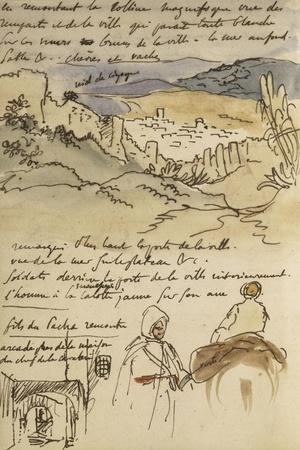 en remontant la colline magnifique vue des
remparts et de la ville qui parait toute blanche
sur les murs bruns de la ville - la mer au fond.
Sable &c - chevres et vaches
nid de cigogne
remarqué plus haut la porte de la ville.
vue de la mer sur le plateau &c.
Soldats derriere la porte de la ville interieurement.
l'homme à la calotte jaune sur son ane
fils du Pacha rencontré
arcade près de la maison
du chef de la